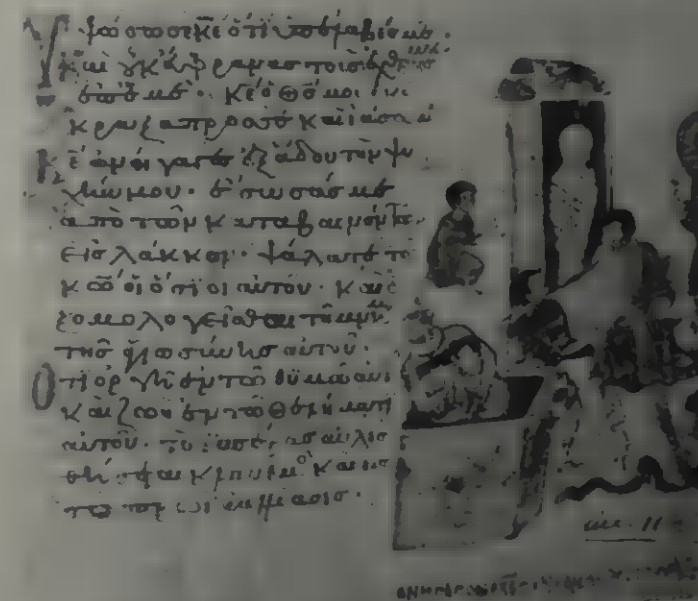 Ὑψώσω σε κε ὅτι ὑπέλαβές με·
καὶ οὐκ ηὔφρανας τοὺς ἐχθρούς
κε ὁ θς μου
κραξα πρὸς σὲ καὶ ἰάσω
κε ἀνήγαγες ἐξ ᾅδου τὴν ψυ
χήν μου· ἔσωσάς με
ἀπὸ τῶν καταβαινόντων
εἰς λάκκον· ψάλατε τῶ
κω οἱ ὅσιοι αὐτοῦ· καὶ ἐ
ξομολογεῖσθαι τῆ μνήμη
τῆς ἁγιωσύνης αὐτοῦ·
Ὅτι ὀργὴ ἐν τῶ θυμῶ αὐτοῦ
καὶ ζωὴ ἐν τῶ θελήματι
αὐτοῦ· τὸ ἑσπέρας αὐλισ
θήσεται κλαυθμὸς καὶ εἰς
τὸ πρωὶ ἀγαλλίασις·